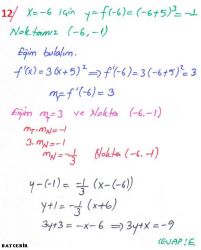 12/ x=-6 için y=f(-6)=(-6+5)³=-1
Noktamız (-6,-1)
Eğim bulalım.
f'(x)=3(x+5)² ⇒ f'(-6)=3(-6+5)²=3
m_T=f'(-6)=3
Eğim m_T=3 ve Nokta (-6,-1)
m_T.m_N=-1
3.m_N=-1
m_N=-1/3 Nokta (-6,-1)
y-(-1)=-1/3(x-(-6))
y+1=-1/3(x+6)
3y+3=-x-6 ⇒ 3y+x=-9
CEVAP: E
BAYGEBİR